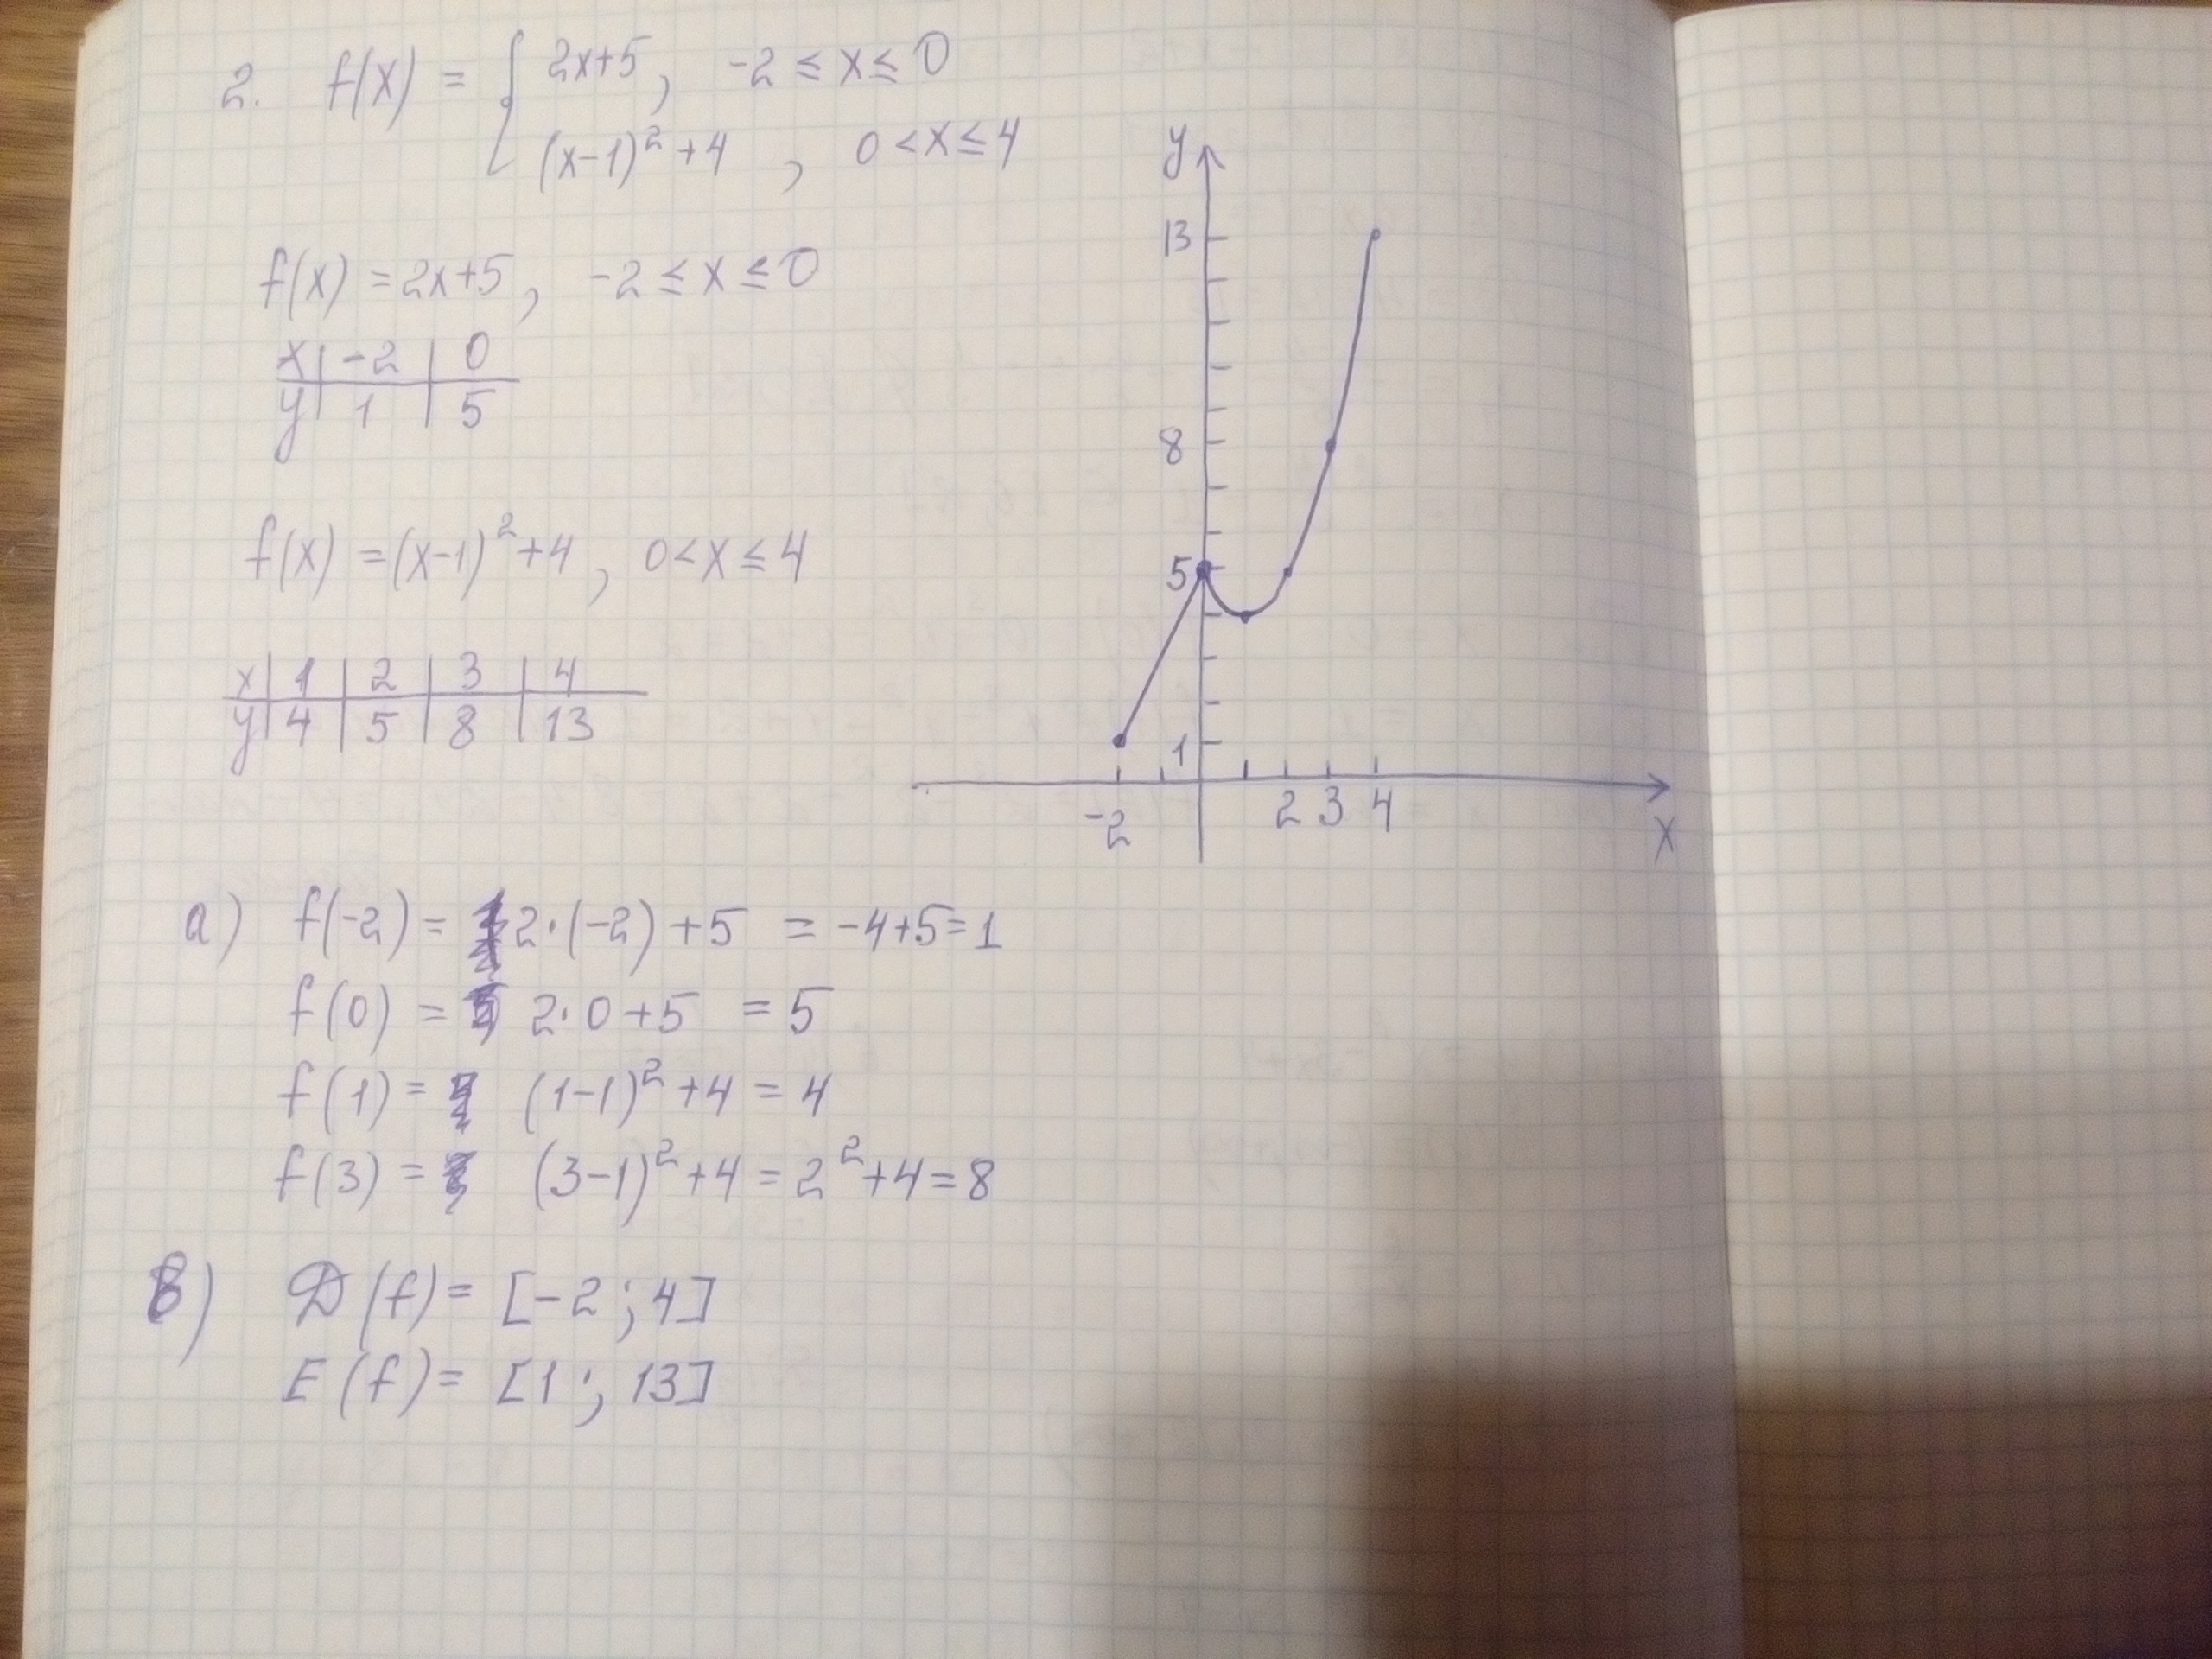 2. f(x) = { 2x+5, -2 ≤ x ≤ 0
(x-1)² +4, 0 < x ≤ 4
f(x) = 2x+5, -2 ≤ x ≤ 0
x | -2 | 0
y | 1 | 5
f(x) = (x-1)² +4, 0 < x ≤ 4
x | 1 | 2 | 3 | 4
y | 4 | 5 | 8 | 13
y
13
8
5
1
-2 2 3 4
x
а) f(-2) = 2·(-2)+5 = -4+5=1
f(0) = 2·0+5 = 5
f(1) = (1-1)² +4 = 4
f(3) = (3-1)² +4 = 2² +4 = 8
в) D(f) = [-2; 4]
E(f) = [1; 13]